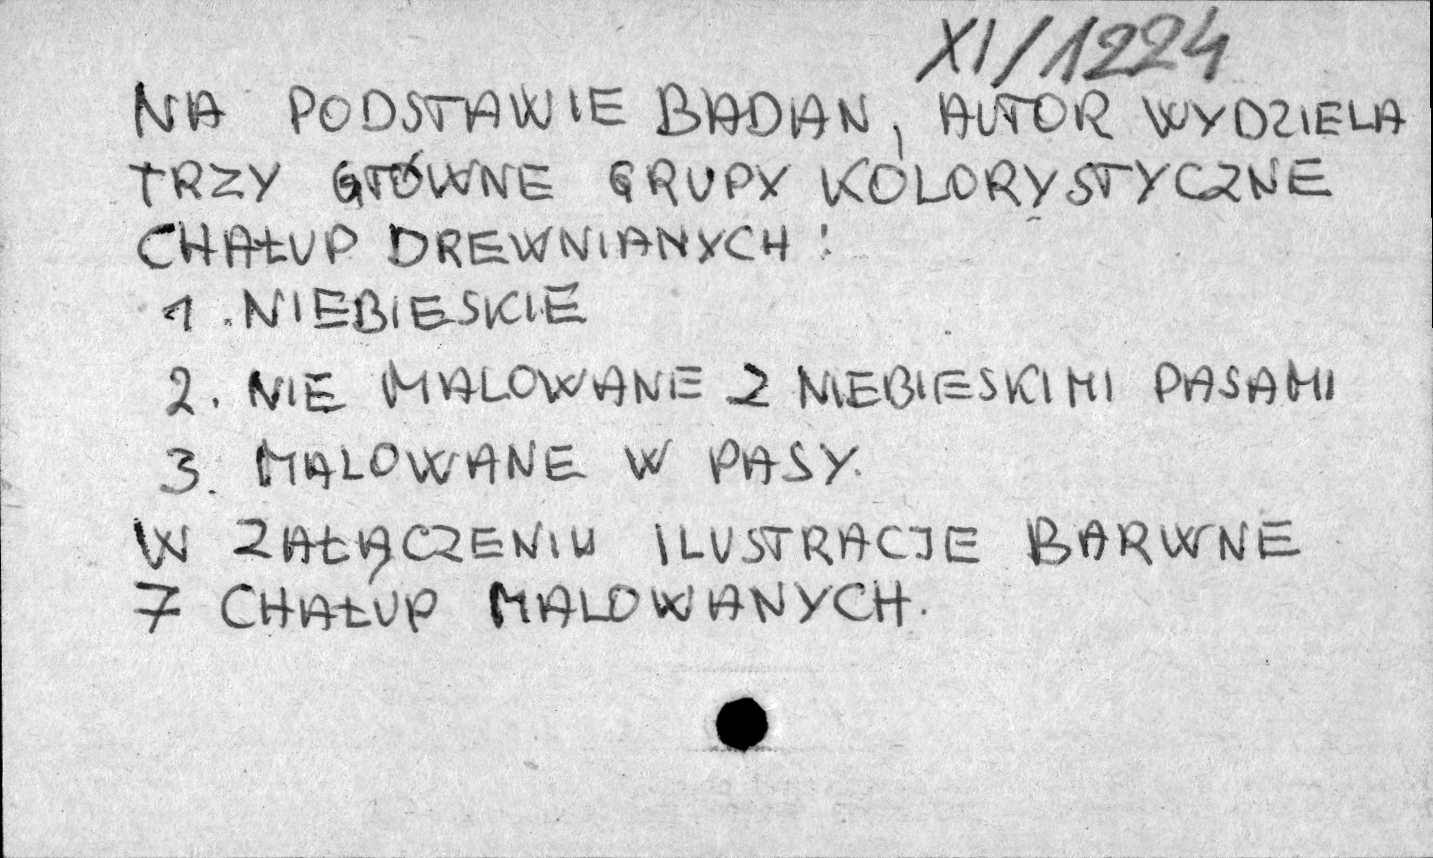 XI/1224
NA PODSTAWIE BADAN, AUTOR WYDZIELA
TRZY GŁÓWNE GRUPY KOLORYSTYCZNE
CHAŁUP DREWNIANYCH:
1. NIEBIESKIE
2. NIE MALOWANE Z NIEBIESKIMI PASAMI
3. MALOWANE W PASY.
W ZAŁĄCZENIU ILUSTRACJE BARWNE
7 CHAŁUP MALOWANYCH.